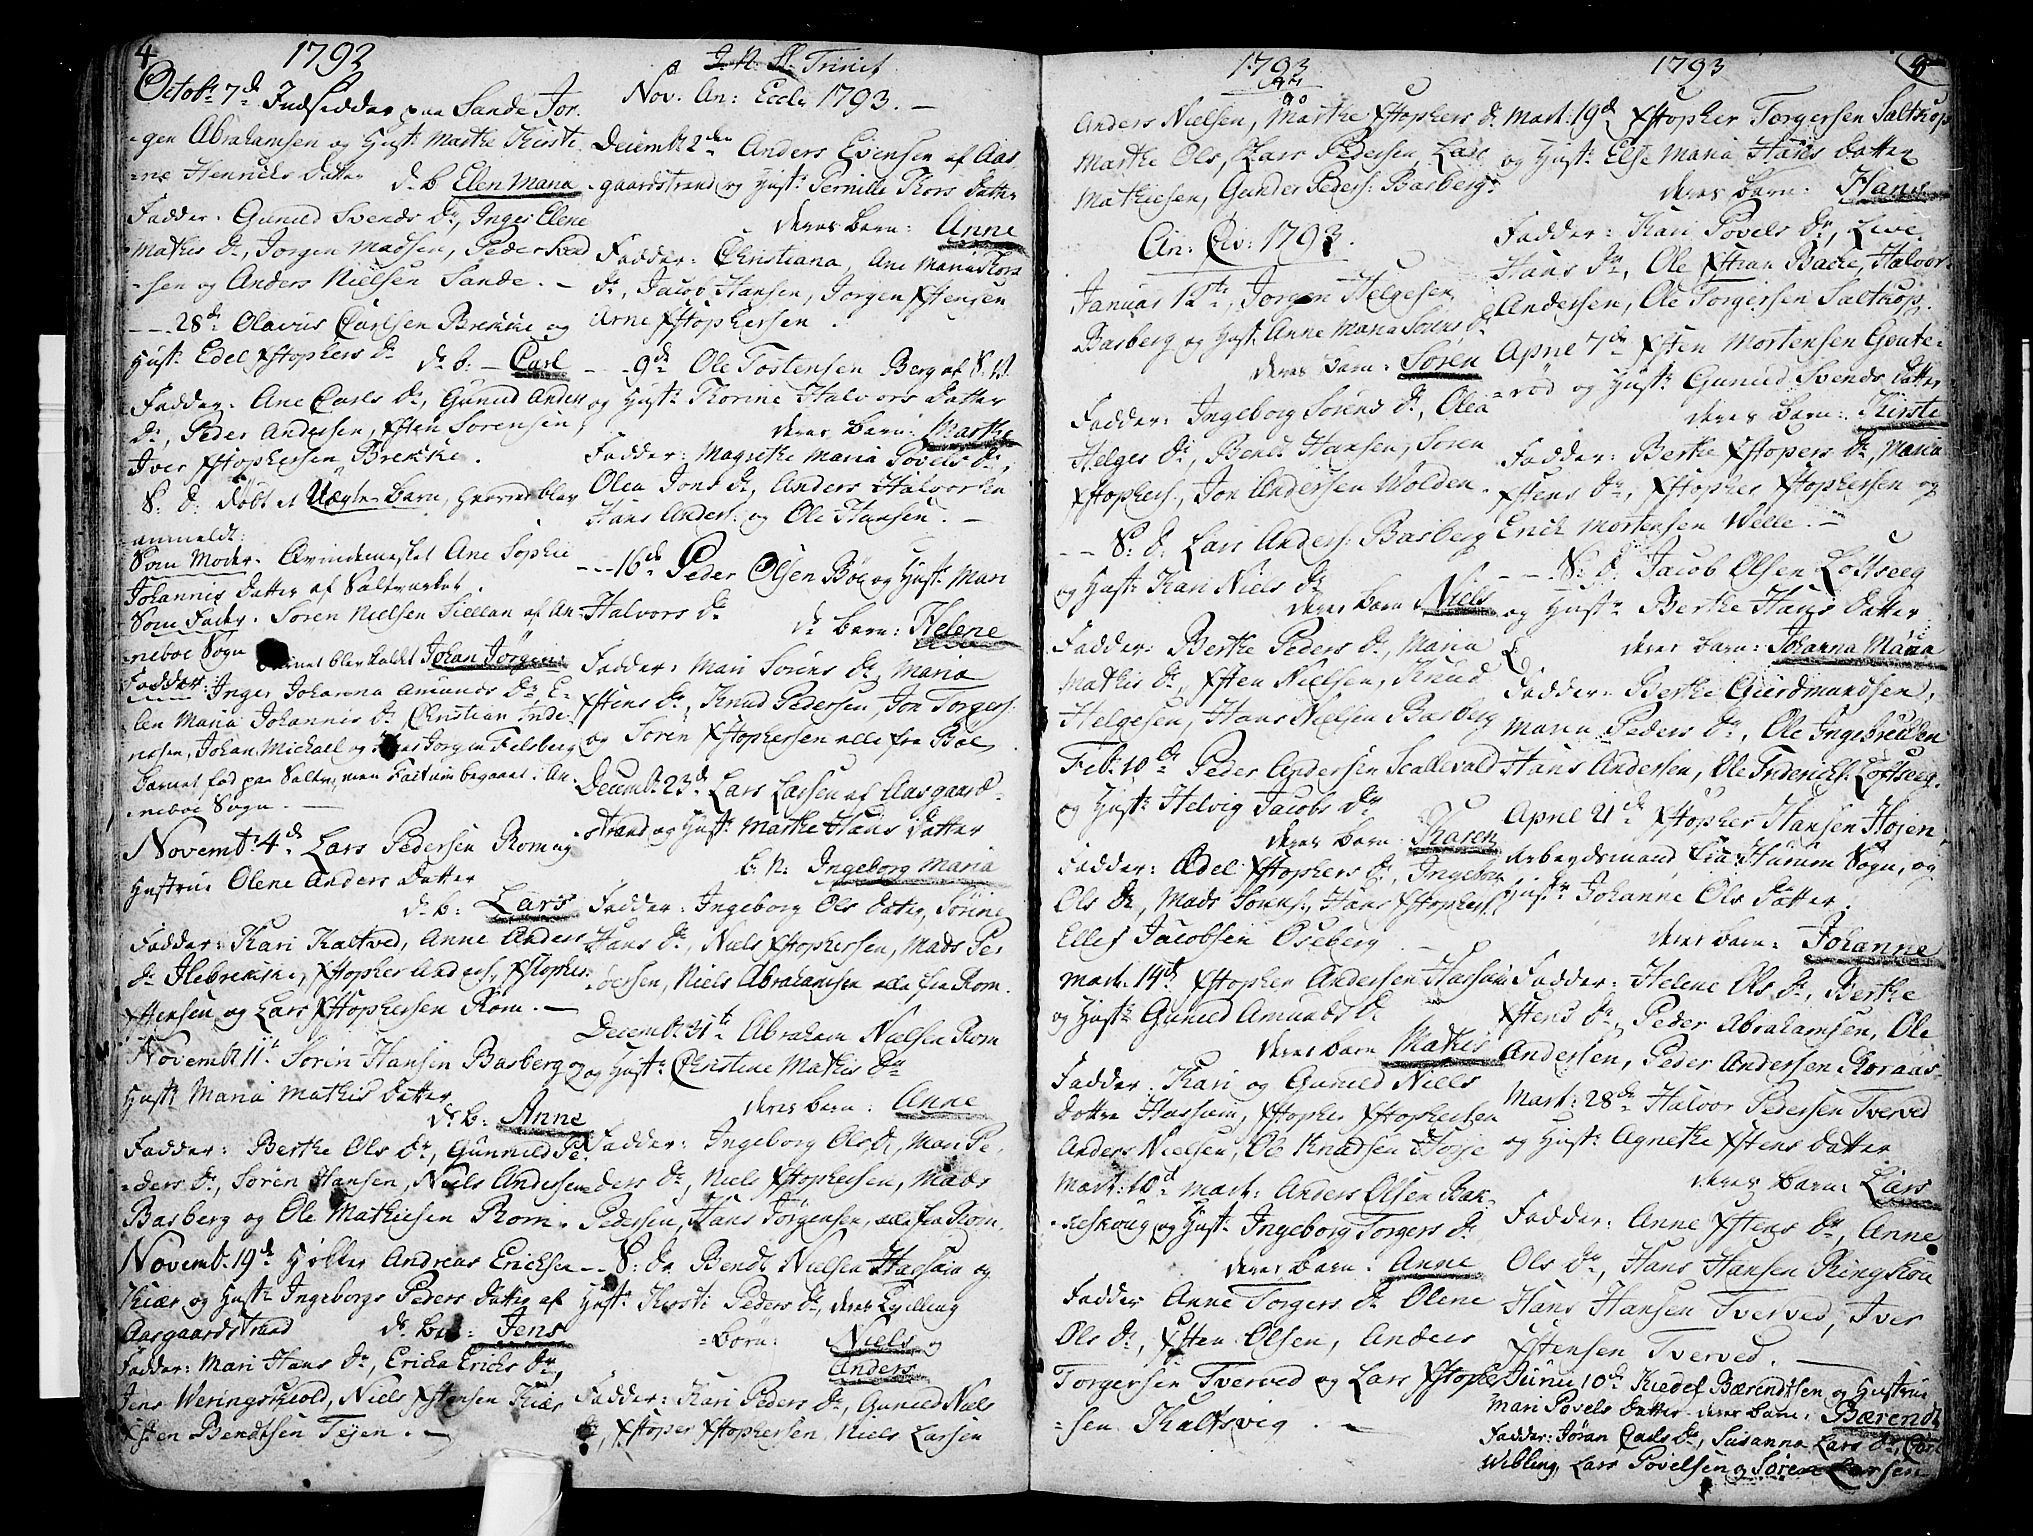 4
1792
Octobr 7de Indsidder paa Sande Jor-
-gen Abrahamsen og Hustr Marthe Kirsti-
-ne Henrichs datter d. b. Elen Maria
Fadder: Gunild Svends Dr, Inger Elene
Mathis Dr, Jorgen Madsen, Peder
-sen og Anders Nielsen Sande. -
--- 28de Olavus Carlsen Brekke og
Hustr Edel Xstophers Dr d. b: - Carl
Fadder. Ane Carls Dr, Gunild Anders
Dr, Peder Andersen, Xsten Sorensen,
Iver Xstophersen Brekke.
S: D: døbt et Uægte barn, hvortil blev
anmeldt:
Som Moder. Qvindemensket Ane Sophie
Johannis datter af Saltværket.
Som Fader. Soren Nielsen af An-
-neboe Sogn Barnet blev kaldt Johan Jörgen.
Fadder: Inger Johanna Amunds Dr E-
len Maria Johannis Dr Christian
Johan Michael og Jorgen Felsberg
Barnet fød paa Saltv, men Factum begaaet i An-
-neboe Sogn. -
Novemb: 4de Lars Pedersen Rom og
Hustrue Olene Anders datter
d. b: Lars
Fadder: Kari Kaltved, Anne Anders
Dr Ilebrekke, Xstopher Anders:, Xstopher
Xstensen og Lars Xstophersen Rom. -
Novemb: 11te Sören Hansen Basberg og
Hustr Maria Mathis datter
d. b: Anne
Fadder: Berthe Ols Dr, Gunnild Pe-
-ders Dr, Sören Hansen, Niels Andersen
Basberg og Ole Mathiesen Rom.
Novemb. 19de Andreas Erichsen
Kiær og Hustr Ingeborg Peders datter af
Aasgaardstrand d. b: Jens
Fadder: Mari Hans Dr, Ericha Erichs Dr,
Jens Weringskiold, Niels Xstensen Kiær
Xsten Bendtsen Teien. -
J. N. Trinit
Nov. An: Eccl: 1793. -
Decemb: 2den Anders Evensen af Aas-
gaardstrand og Hustr Pernille Thors datter
deres barn: Anne
Fadder: Christiana, Ane Maria Thors
Dr, Jacob Hansen, Jorgen Xstensen
Arne Xstophersen.
--- 9de Ole Tostensen Berg af S. V.
og Hustr Thorine Halvors datter
deres barn: Marthe
Fadder: Magrethe Maria Povels Dr,
Olea Jons Dr, Anders Halvorsen
Hans Anders: og Ole Hansen. -
--- 16de Peder Olsen Böe og Hustr Mari
Halvors Dr
d. barn: Helene
Fadder: Mari Sörens Dr, Maria
Xstens Dr, Knud Pedersen, Jon Torgers:
og Sören Xstophersen alle fra Böe
Decemb: 23de Lars Larsen af Aasgaard-
strand og Hustr Marthe Hans datter
b. N. Ingeborg Maria
Fadder: Ingeborg Ols datter, Sörine
Hans Dr, Niels Xstophersen, Mads Pe-
-dersen, Niels Abrahamsen alle fra Rom.
Decemb: 31te Abraham Nielsen Rom
og Hustr Christine Mathis Dr
deres barn: Anne
Fadder: Ingeborg Ols Dr, Mari Pe-
ders Dr, Niels Xstophersen, Mads
Pedersen, Hans Jörgensen, alle fra Rom.
-- S: D: Bendt Nielsen Hassum og
Hustr Kirsti Peders Dr, deres Tvilling
-börn: Niels og
Anders
Fadder: Kari Peders Dr, Gunild Niels
Dr, Xstoper Xstophersen, Niels Larsen
1793
Anders Nielsen, Marthe Xstophers Dr
Marthe Ols, Lars Pedersen, Lars
Mathiesen, Gunder Peders: Basberg.
An: Civ: 1793.
Januar 12te Jorgen Helgesen
Basberg og Hustr Anne Maria Sörens Dr
deres barn: Sören
Fadder: Ingeborg Sörens Dr, Olea
Helges Dr, Bendt Hansen, Sören
Xstophers:, Jon Andersen Wolden.
-- S: D: Lars Anders: Basberg
og Hustr Kari Niels Dr
deres barn Niels
Fadder: Berthe Peders Dr, Maria
Mathis Dr, Xsten Nielsen, Knud
Helgesen, Hans Nielsen Basberg
Feb. 10de Peder Andersen Scallevald
og Hustr Helvig Jacobs Dr
deres barn: Karen
Fadder: Adel Xstophers Dr, Ingeborg
Ols Dr, Mads Sörens:, Hans Xstophers:
Ellef Jacobsen Oseberg. -
Mart. 14de Xstopher Andersen Hassum
og Hustr Gunild Amunds Dr
deres barn Mathis
Fadder. Kari og Gunild Niels
dottre Hassum, Xstopher Xstophersen
Anders Nielsen, Ole Knudsen
Mart: 10de Mart: Anders Olsen Bak-
-keskoug og Hustr Ingeborg Torgers Dr
deres barn: Anne
Fadder Anne Torgers Dr Olene
Ols Dr, Xsten Olsen, Anders
Torgersen Tverved og Lars Xstopher-
-sen Kaltsvig. -
1793
Mart: 19de Xstopher Torgersen Saltkop
og Hustr Else Maria Hans datter
deres barn: Hans
Fadder: Kari Povels Dr, Live
Hans Dr, Ole Xstian Backe, Halvor
Andersen, Ole Torgersen Saltkop.
Aprile 7de Xsten Mortensen Goute-
-röd og Hustr Gunild Svends datter
deres barn: Kirsti
Fadder: Berthe Xstopers Dr, Maria
Xstens Dr, Xstopher Xstophersen og
Erich Mortensen Welle. -
-- S: D: Jacob Olsen Løttseeg
og Hustr Berthe Hans datter
deres barn: Johanna Maria
Fadder: Berthe Guldmundsen,
Maria Peders Dr, Ole
Hans Andersen, Ole Friderichs:
Aprile 21de Xstopher Hansen
Arbeydsmand fra Sogn, og
Hustr Johanne Ols datter.
deres barn: Johanne
Fadder: Helene Ols Dr, Berthe
Xstens Dr, Peder Abrahamsen, Ole
Andersen, Peder Andersen
Mart: 28de Halvor Pedersen Tverved
og Hustr Agnethe Xstens datter
deres barn: Lars
Fadder: Anne Xstens Dr, Anne
Ols Dr, Hans Hansen Ringskou
Hans Hansen Tverved, Iver
Xstensen Tverved. -
Junii 10de Bærendtsen og Hustrue
Mari Povels datter deres barn: Bærendt
Fadder: Jöran Carls Dr, Susanna Lars Dr, Carl
Wibling, Lars Povelsen og Sören Larsen